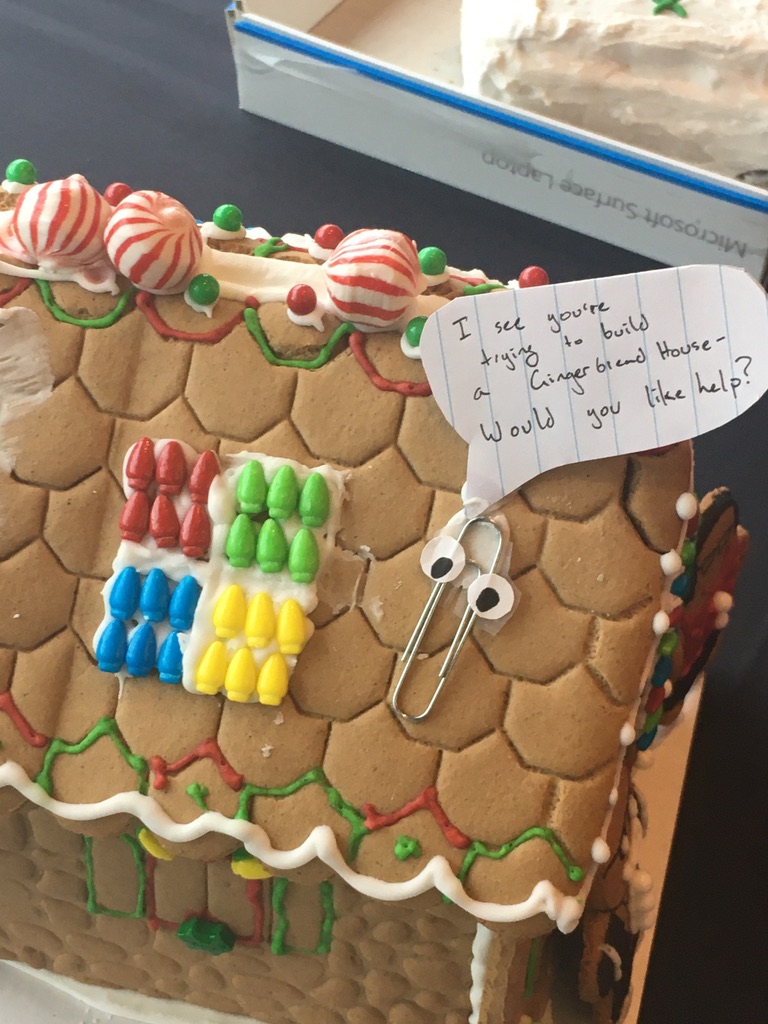 Microsoft Surface Laptop
I see you're
trying to build
a Gingerbread House-
Would you like help?